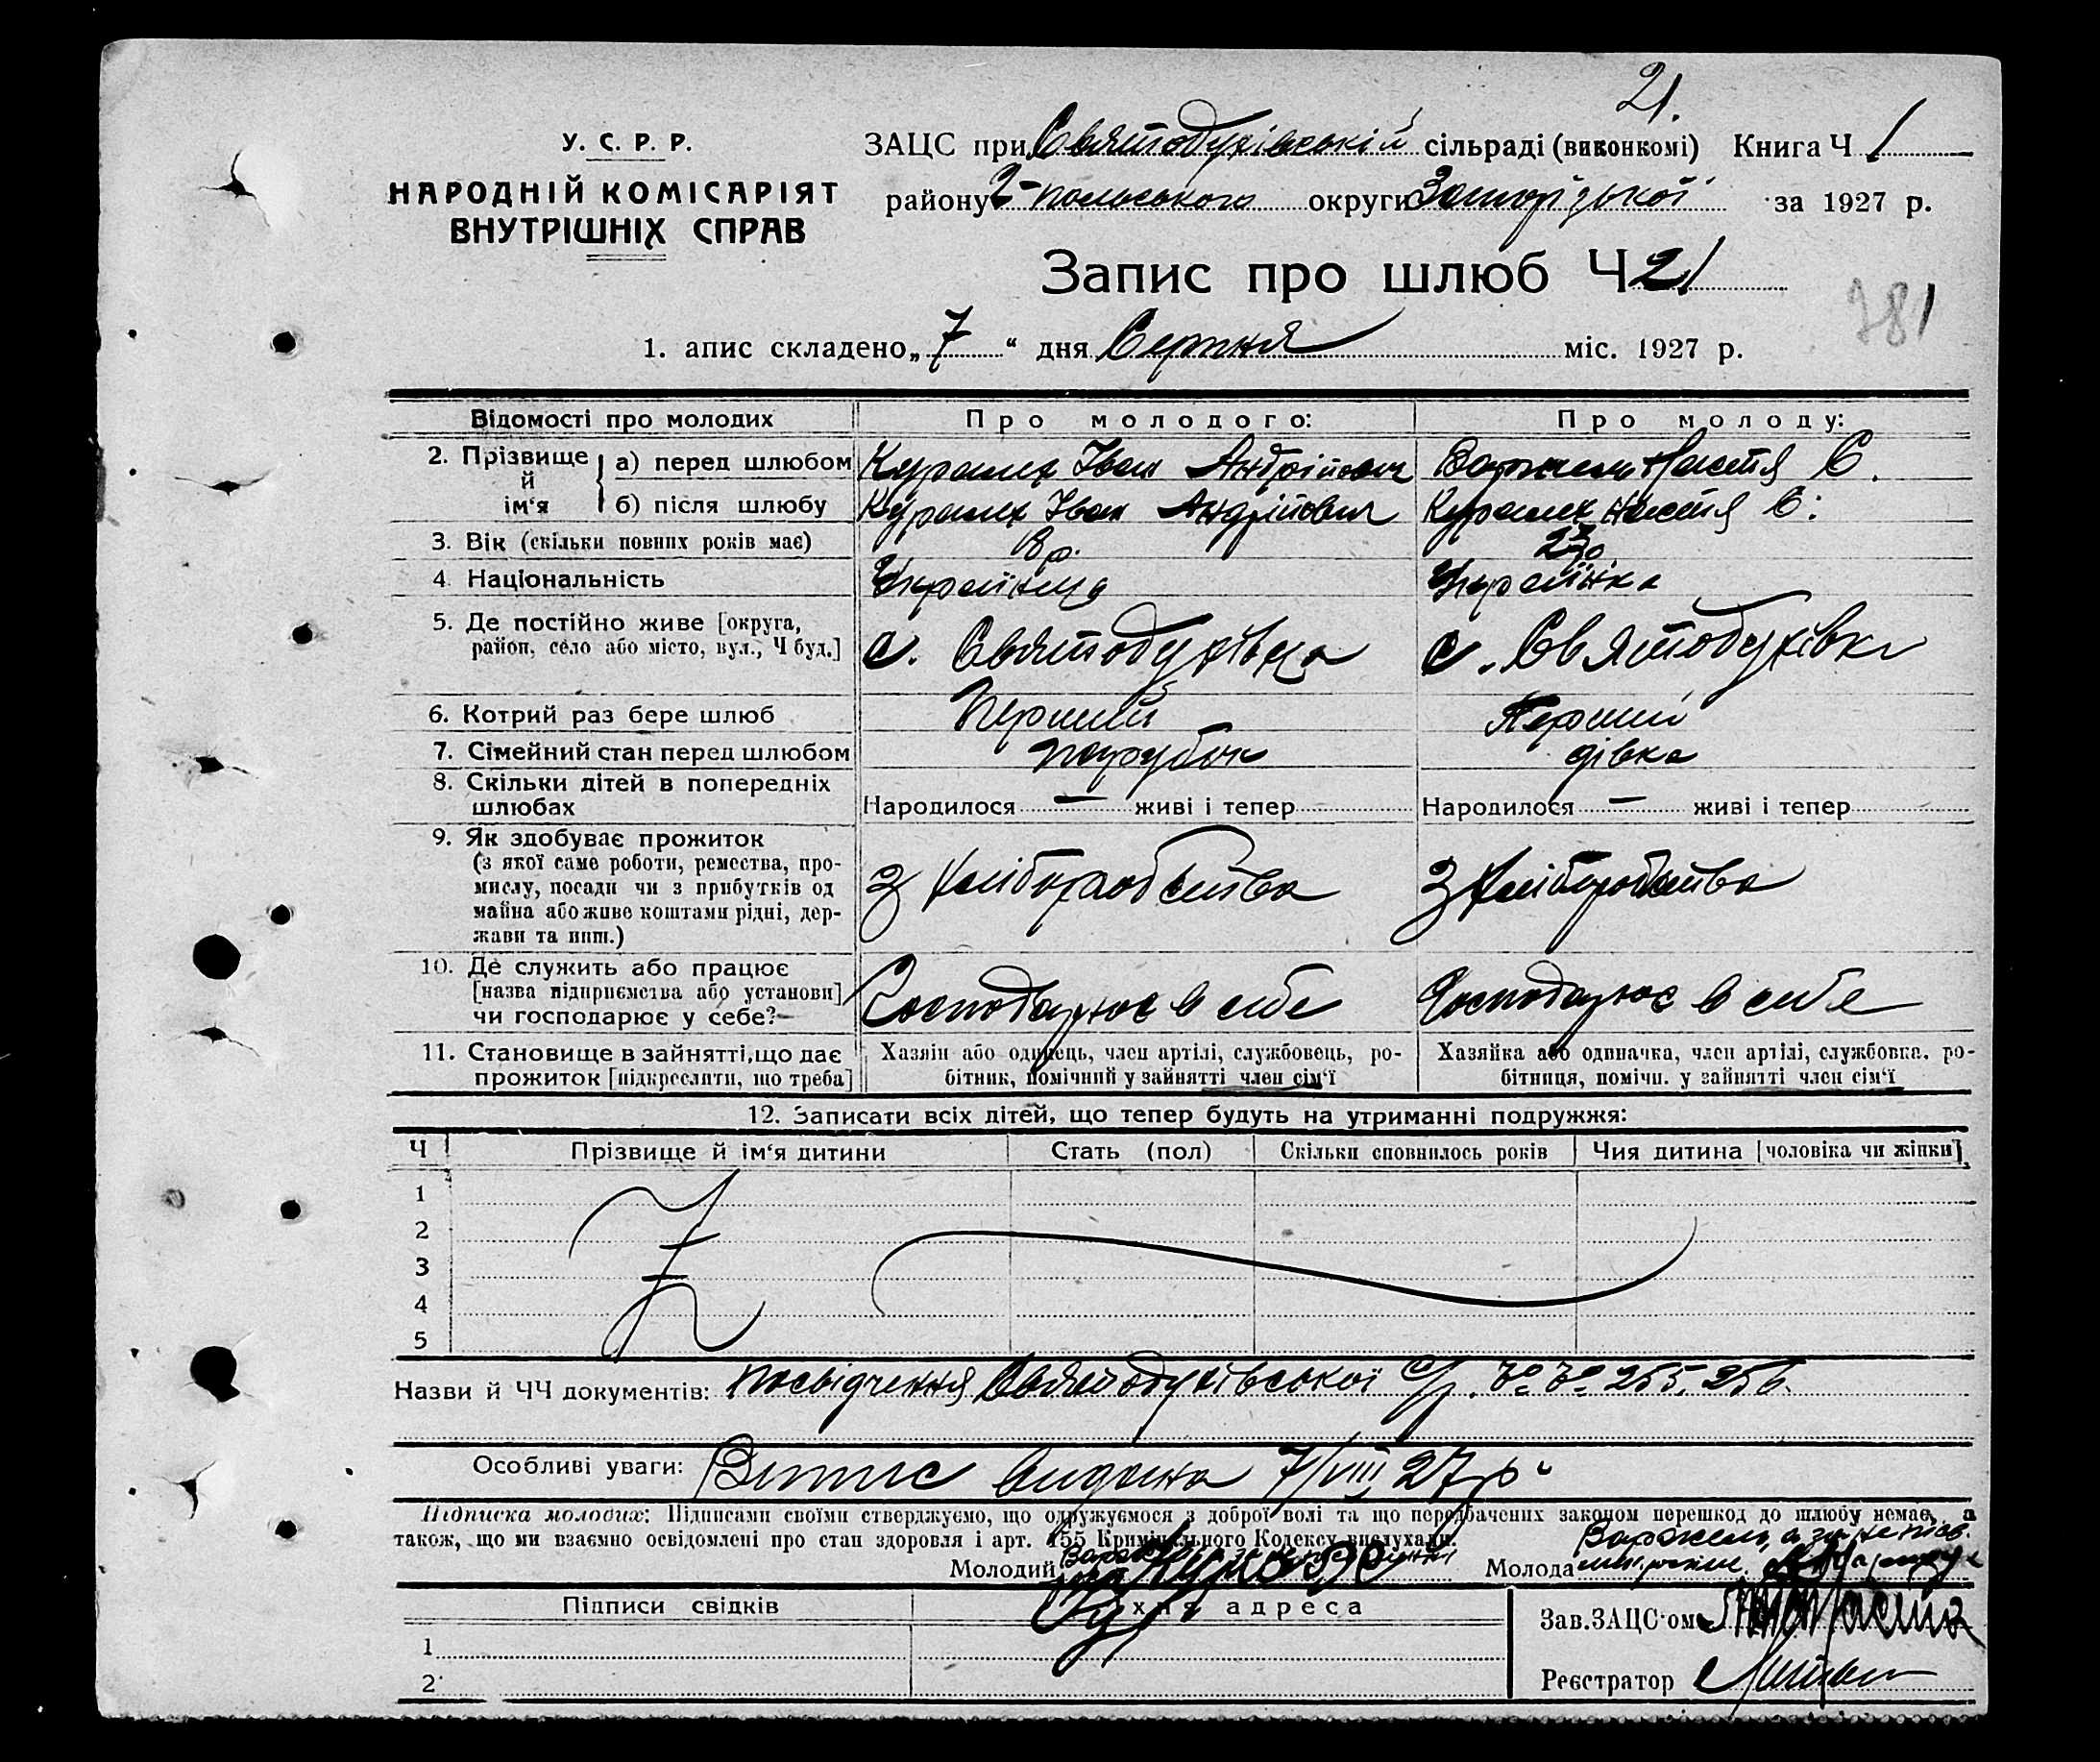 21.
У. С. Р. Р.
НАРОДНІЙ КОМІСАРІЯТ
ВНУТРІШНІХ СПРАВ
ЗАЦС при Святодухівській сільраді (виконкомі) Книга Ч 1
району польського округи за 1927 р.
Запис про шлюб Ч 21
781
1. апис складено „7“ дня Серпня міс. 1927 р.
Відомості про молодих Про молодого: Про молоду:
2. Прізвище й ім‘я
а) перед шлюбом Іван Андрійович Настя С.
б) після шлюбу Іван Андрійович Настя С.
3. Вік (скільки повних років має) 18 р. 23
4. Національність Українка
5. Де постійно живе [округа, с. с. Святодухівка
район, село або місто, вул., Ч буд.]
6. Котрий раз бере шлюб Перший Перший
7. Сімейний стан перед шлюбом парубок дівка
8. Скільки дітей в попередніх
шлюбах Народилося — живі і тепер Народилося — живі і тепер
9. Як здобуває прожиток
(з якої саме роботи, ремества, про-
мислу, посади чи з прибутків од з хліборобства з хліборобства
майна або живе коштами рідні, дер-
жави та инш.)
10. Де служить або працює
[назва підприємства або установи] Господарює в себе Господарює в себе
чи господарює у себе?
11. Становище в зайнятті, що дає Хазяін або одинець, член артілі, службовець, ро- Хазяйка або одиначка, член артілі, службовка, ро-
прожиток [підкреслити, що треба] бітник, помічний у зайнятті член сім‘ї бітниця, помічн. у зайнятті член сім‘ї
12. Записати всіх дітей, що тепер будуть на утриманні подружжя:
Ч Прізвище й ім‘я дитини Стать (пол) Скільки сповнилось років Чия дитина [чоловіка чи жінки]
1
2
3
4
5
Назви й ЧЧ документів: посвідчення Святодухівської с/р. 255, 256.
Особливі уваги: Випис видана 7/VIII 27 р.
Підписка молодих: Підписами своїми стверджуємо, що одружуємося з доброї волі та що передбачених законом перешкод до шлюбу немає, а
також, що ми взаємно освідомлені про стан здоровля і арт. 155 Кримінального Кодексу вислухали.
Молодий Молода
Підписи свідків хня адреса Зав. ЗАЦС‘ом
1
2 Реєстратор